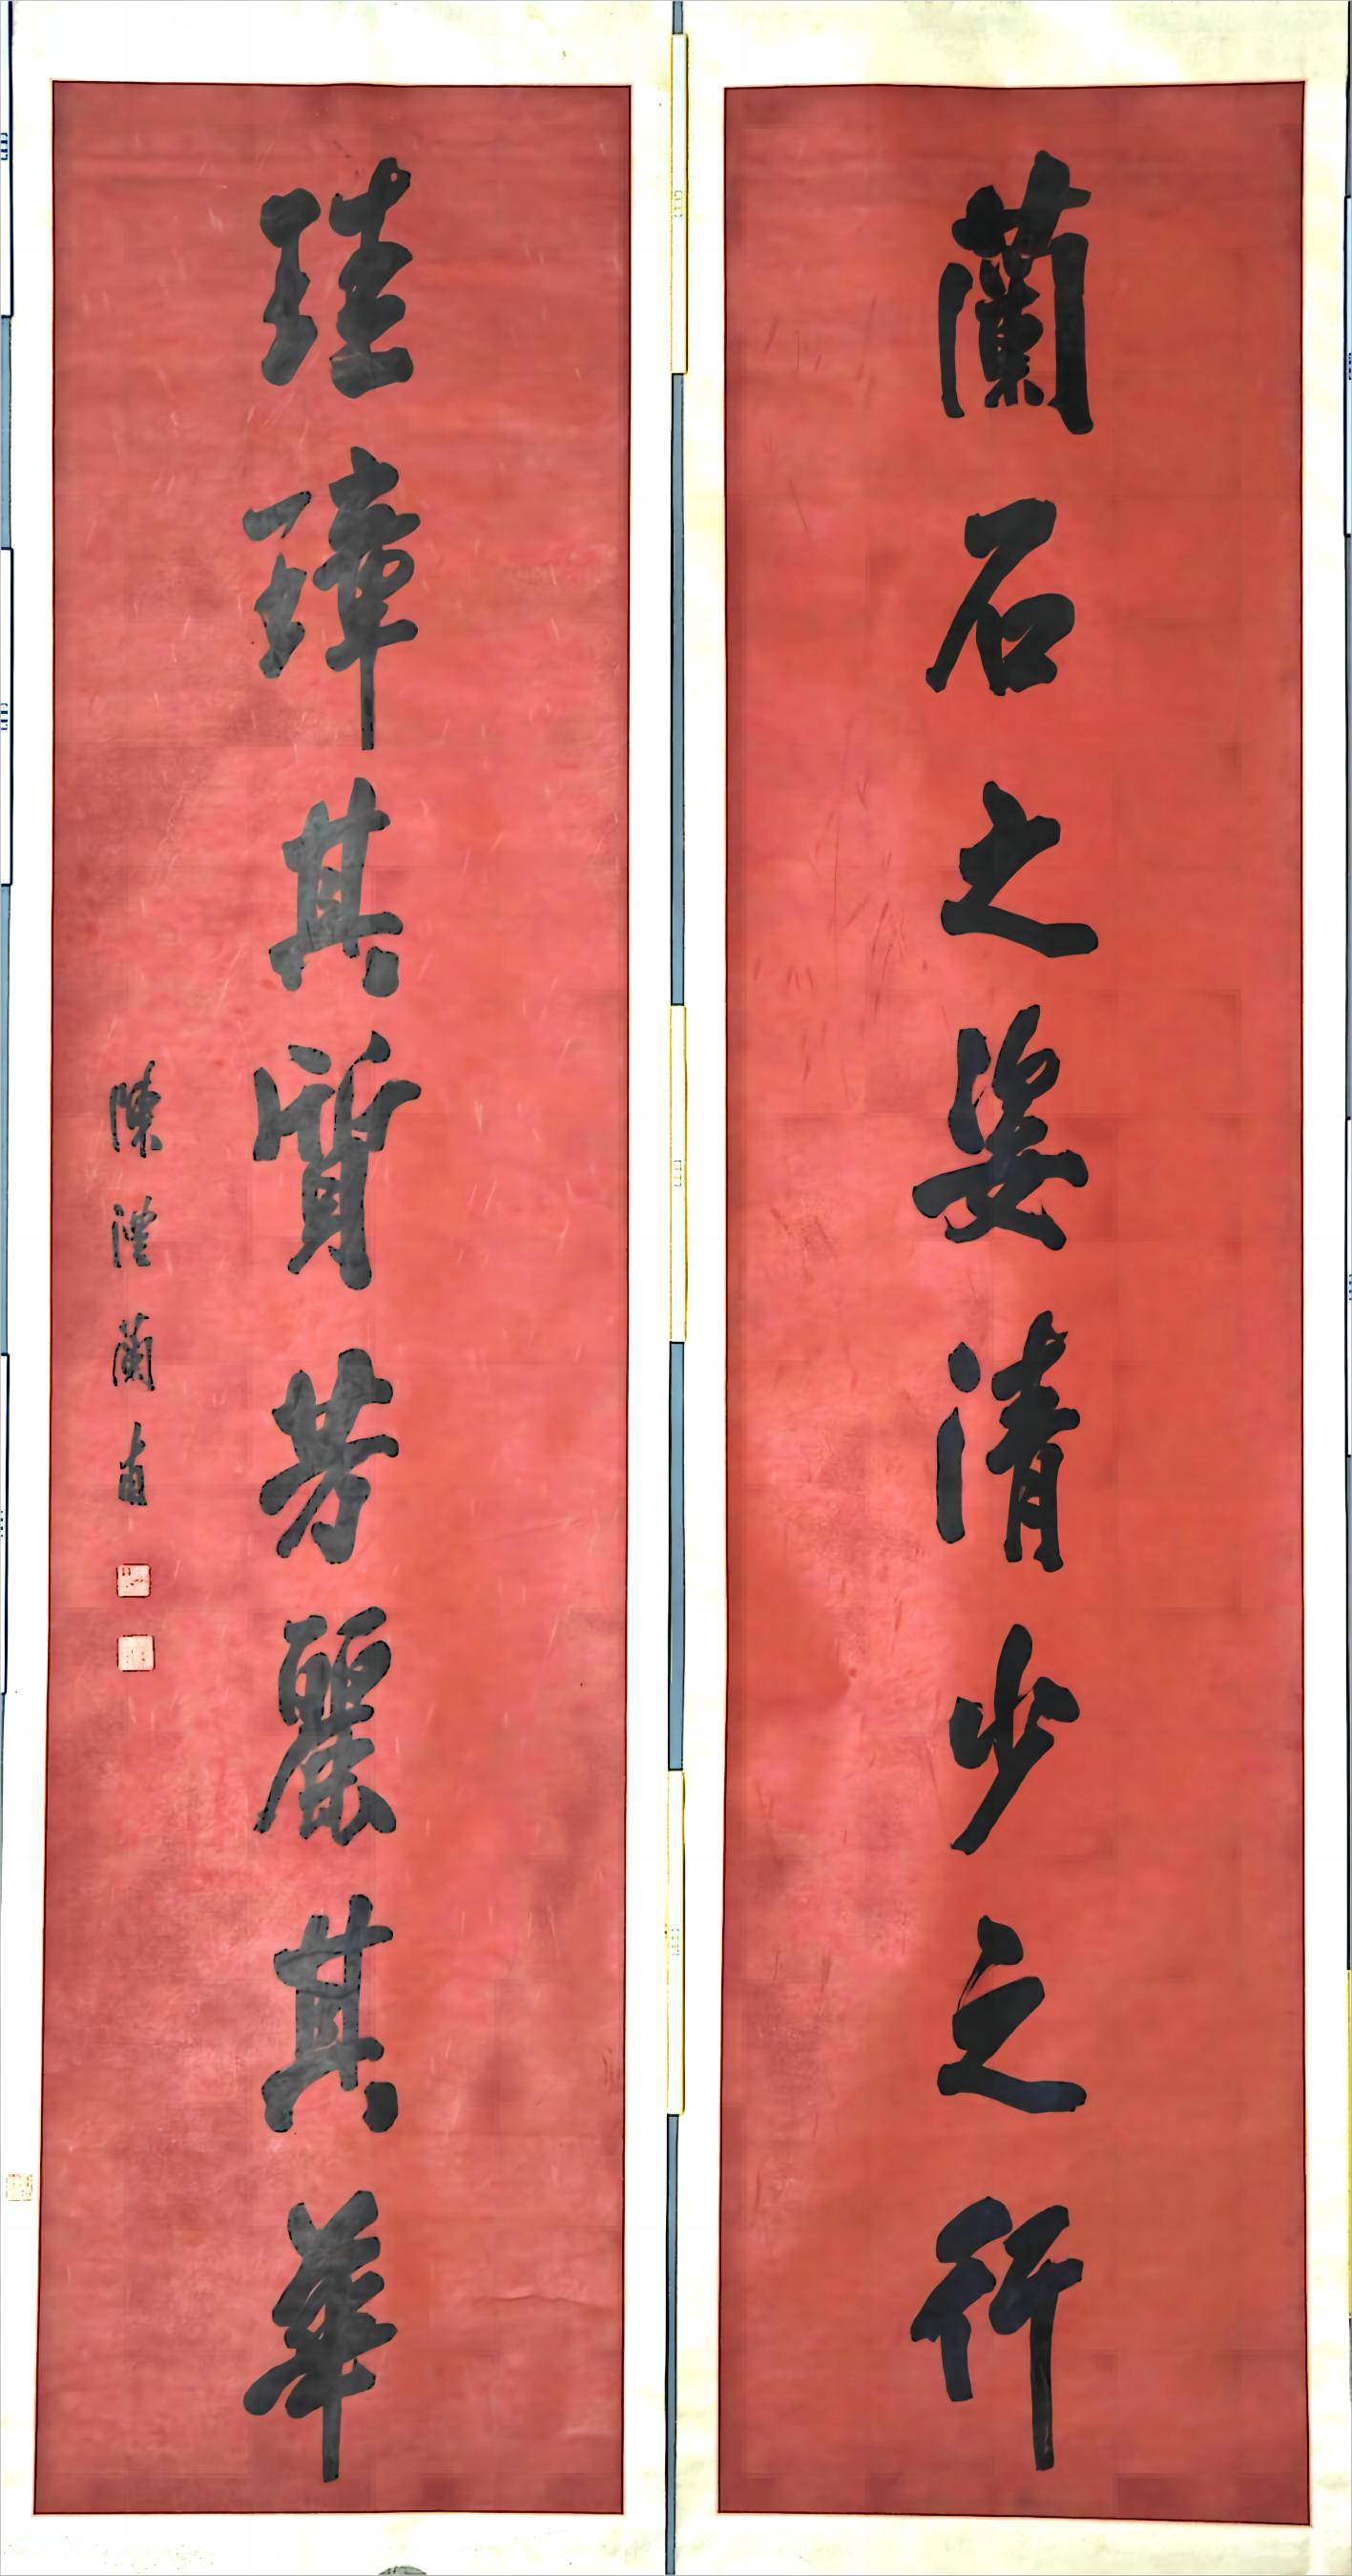 蘭石之姿清妙之行
珪璋其質芳麗其華
陳澧蘭甫